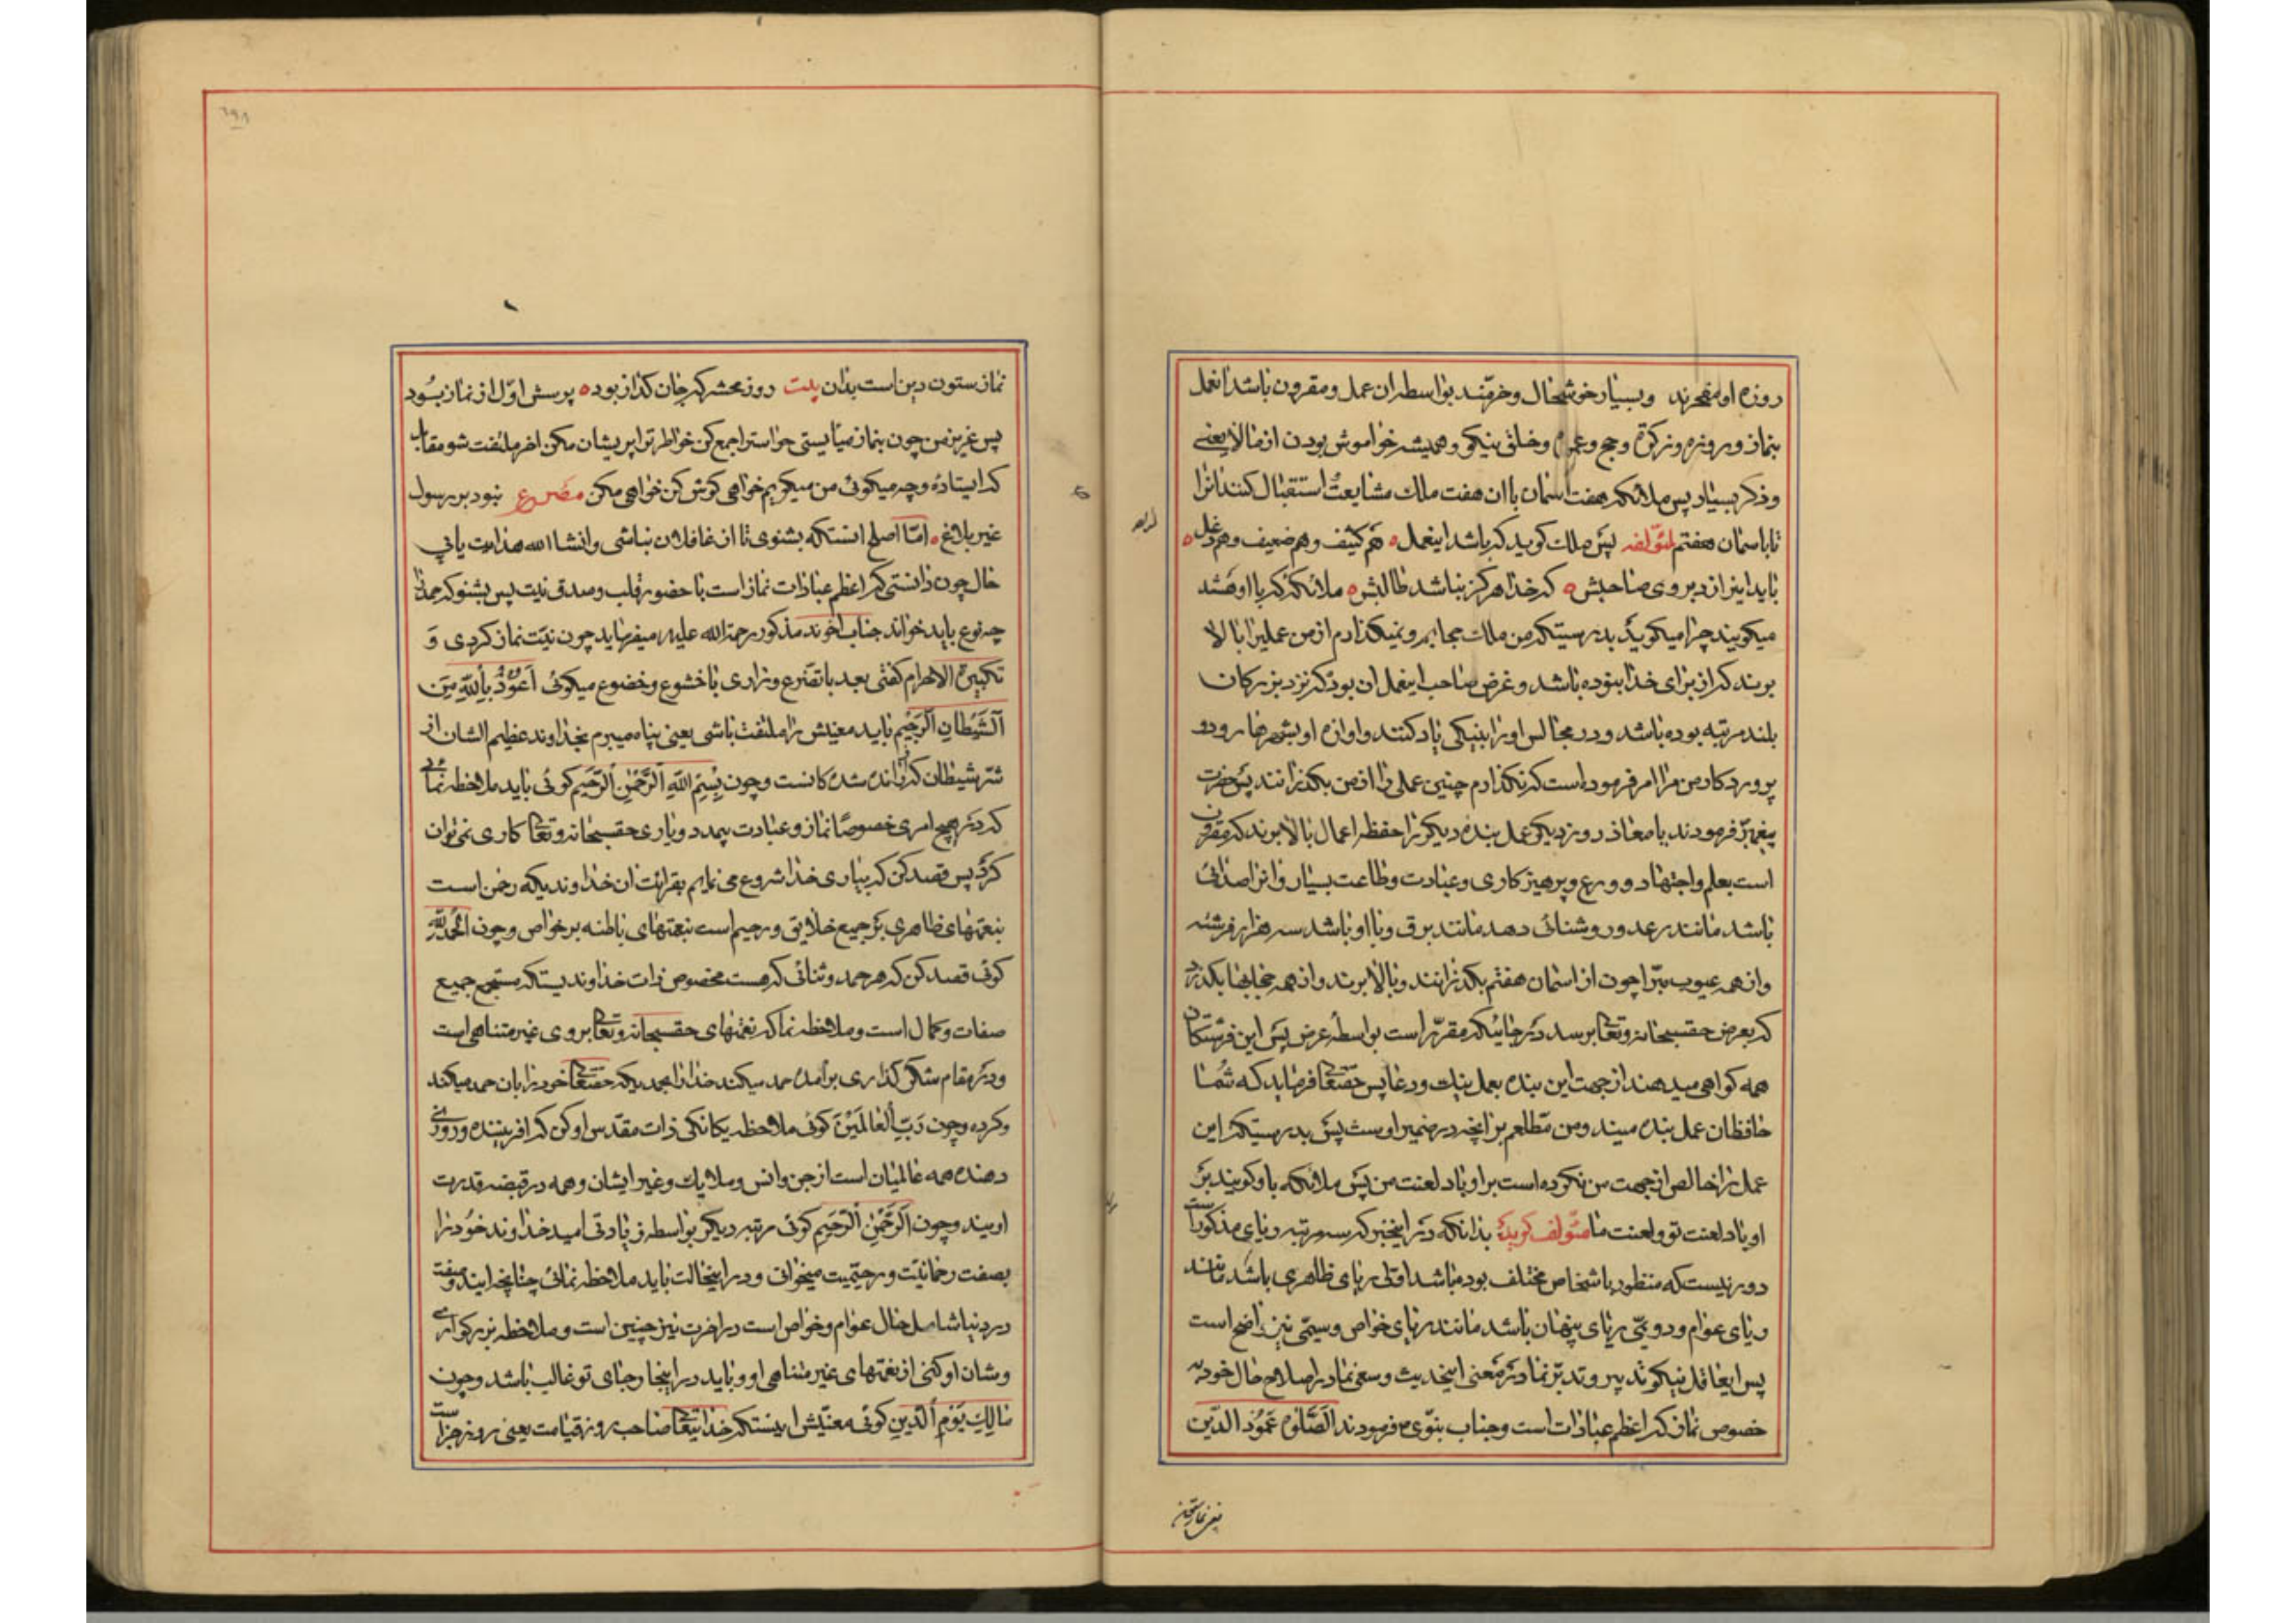 روزه او مفخرند و بسیار خوشحال و خرمند بواسطه ان عمل و مقرون باشد انعمل
بنماز و روزه و زکوة و حج و عمره و خلق نیکو و همیشه خواموش بودن از مالا یعنی
و ذکر بسیار پس ملائکه هفت اسمان با ان هفت ملک مشایعت استقبال کنند انرا
تا باسمان هفتم لمؤلفه پس ملک کوید که باشد اینعمل ه هم کثیف و هم ضعیف و هم دغل ه
باید اینرا زد بروی صاحبش ه که خدا هرکز نباشد طالبش ه ملائکه که با او هستند
میکویند چرا میکوید بدرستیکه من ملک حجابم و نمیکذارم از من عملیرا بالا
برند که از برای خدا ننوده باشد و غرض صاحب اینعمل ان بود که نزد بزرکان
بلند مرتبه بوده باشد و در مجالس او را بنیکی یاد کنند و اوازه او بشهرها رود و
پروردکار من مرا امر فرموده است که نکذارم چنین عملی را از من بکذرانند پس حضرت
پیغمبر فرمودند یا معاذ روز دیکر عمل بنده دیکر را حفظه اعمال بالا برند که مقرون
است بعلم و اجتهاد و ورع و پرهیزکاری و عبادت و طاعت بسیار و انرا صدائی
باشد مانند رعد و روشنائی دهد مانند برق و با او باشد سه هزار فرشته
و از همه عیوب مبرا چون از اسمان هفتم بکذرانند و بالا برند و از همه حجابها بکذرد
که بعرض حقسبحانه و تعالی برسد در جائیکه مقرر است بواسطه عرض پس این فرشتکان
همه کواهی میدهند از جهت این بنده بعمل نیک و دعا پس حقتعالی فرماید که شما
حافظان عمل بنده مید و من مطلعم بر انچه در ضمیر اوست پس بدرستیکه این
عمل را خالص از جهت من نکرده است بر او باد لعنت من پس ملائکه باو کویند بر
او باد لعنت تو و لعنت ما مؤلف کوید بدانکه در اینخبر که سه مرتبه ریای مذکور است
دور نیست که منظور باشخاص مختلف بوده باشد اولی ریای ظاهری باشد مانند
ریای عوام و دویمی ریای پنهان باشد مانند ریای خواص و سیمی نیز واضح است
پس ایعاقل نیکو تدبیر و تدبر نما در معنی اینحدیث و سعی نما در اصلاح حال خود در
خصوص نماز که اعظم عبادات است و جناب نبوی ص فرمودند الصلوة عمود الدین
یعنی نماز ستون
نماز ستون دین است بدان بیت روز محشر که جان کداز بود ه پرسش اول از نماز بود
پس عزیز من چون بنماز میایستی حواسترا جمع کن خواطر ترا پریشان مکن اخر ملتفت شو مقابل
که ایستادهٔ و چه میکوئی من میکویم خواهی کوش کن خواهی مکن مصرع نبود بر رسول
غیر بلاغ ه اما اصلح انستکه بشنوی تا از غافلان نباشی و انشا الله هدایت یابی
حال چون دانستی که اعظم عبادات نماز است با حضور قلب و صدق نیت پس بشنو که حمد را
چه نوع باید خواند جناب اخوند مذکور رحمة الله علیه میفرماید چون نیت نماز کردی و
تکبیرة الاحرام کفتی بعد با تضرع و زاری با خشوع و خضوع میکوئی اَعوُذُ بِاللهِ مِنَ
اَلشَّیْطانِ الَرَجیْمِ باید معنیش را ملتفت باشی یعنی پناه میبرم بخداوند عظیم الشان از
شر شیطان که رانده شده کانست و چون بِسْمِ اللهِ اَلرَّحْمٰنِ اَلرَّحیمِ کوئی باید ملاحظه نمائی
که در هیچ امری خصوصًا نماز و عبادت بیمدد و یاری حقسبحانه و تعالی کاری نمیتوان
کرد پس قصد کن که بیاری خدا شروع می نمایم بقرائت ان خداوندیکه رحمن است
بنعمتهای ظاهری بر جمیع خلایق و رحیم است بنعمتهای باطنه بر خواص و چون الحمد لله
کوئی قصد کن که هر حمد و ثنائی که هست مخصوص ذات خداوندیستکه مستجمع جمیع
صفات و کمال است و ملاحظه نما که نعمتهای حقسبحانه و تعالی بر وی غیر متناهی است
و در مقام شکر کذاری بر امده حمد میکند خدا را بحمدیکه حقتعالی خود را بان حمد میکند
و کرده و چون رَبِّ اَلعالَمیْنَ کوئی ملاحظه یکانکی ذات مقدس او کن که افریننده و روزی
دهنده همه عالمیان است از جن و انس و ملایک و غیر ایشان و همه در قبضه قدرت
اویند و چون اَلرَّحْمٰنِ اَلرَّحیمِ کوئی مرتبه دیکر بواسطه زیادتی امید خداوند خود را
بصفت رحمانیت و رحیمیت میخوانی و در اینحالت باید ملاحظه نمائی چنانچه ایندو صفت
در دنیا شامل حال عوام و خواص است در اخرت نیز چنین است و ملاحظه بزرکواری
و شان او کنی از نعمتهای غیر متناهی او و باید در اینجا رجای تو غالب باشد و چون
مالِکِ یَوْمِ اَلدّینِ کوئی معنیش اینستکه خدایتعالی صاحب روز قیامت یعنی روز جزاست